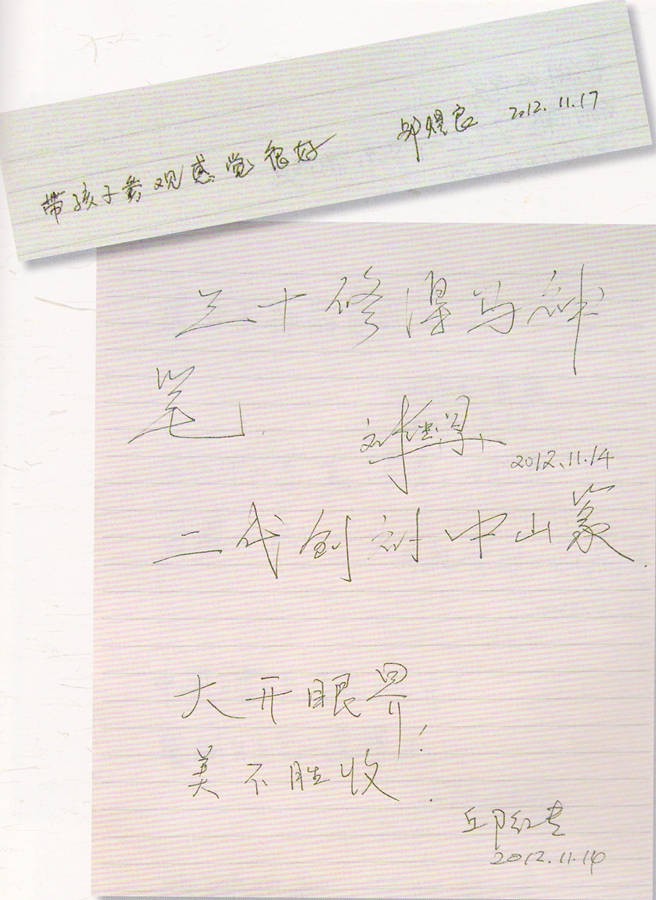 带孩子参观感觉很好 邱煜良 2012.11.17
三十修得马神
笔
2012.11.14
二代创新中山篆
大开眼界!
美不胜收.
邱红 2012.11.14